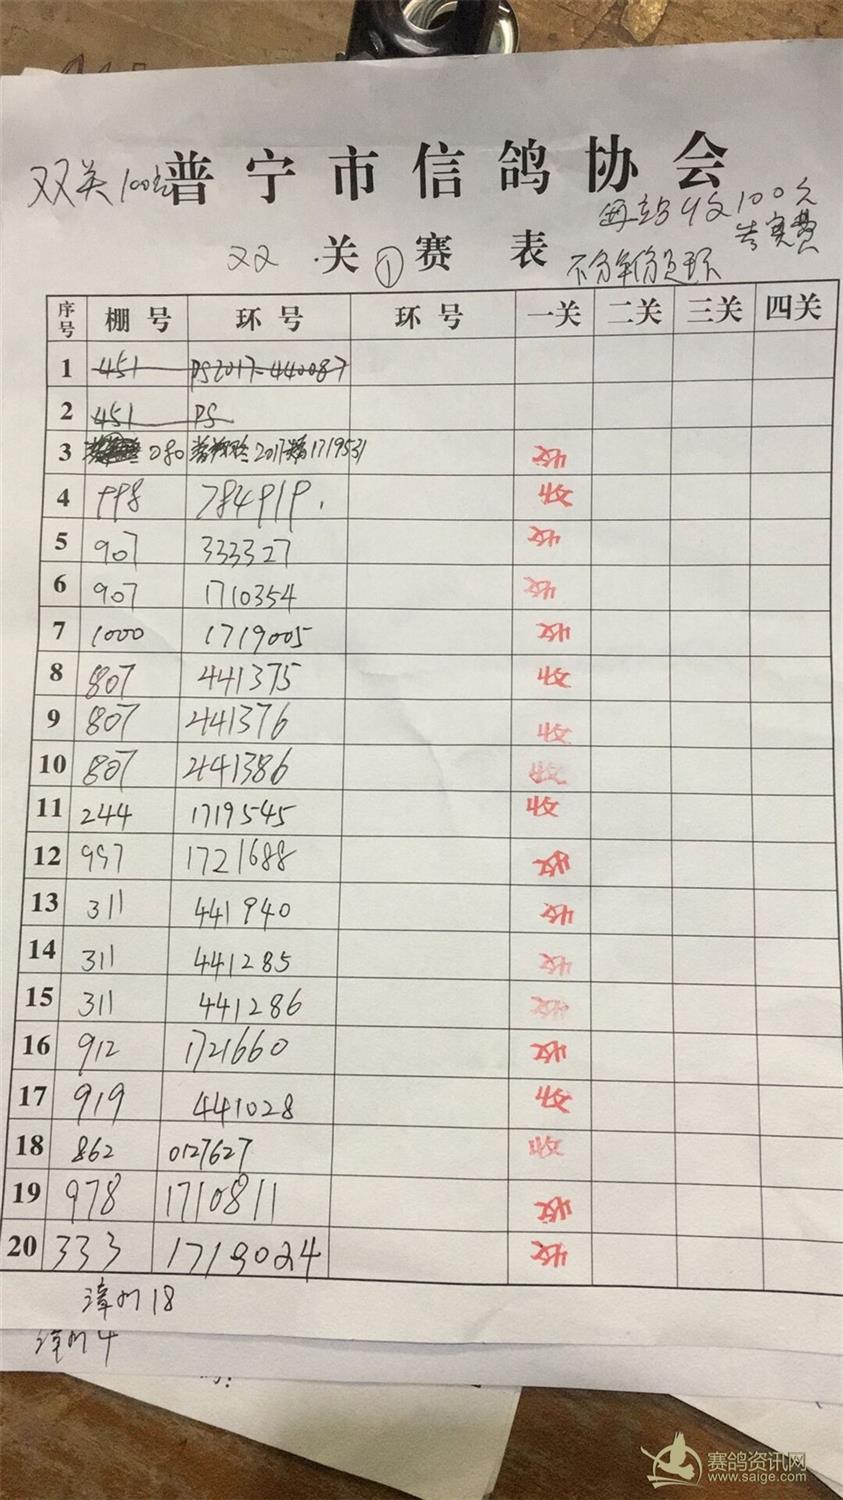 双关100元 普宁市信鸽协会
每站收100元
双 关 ① 赛 表 告实费
不分年份足环
序号 棚号 环号 环号 一关 二关 三关 四关
1 451 PS2017-440087
2 451 PS
3 080 2017 1719531 收
4 998 784919 收
5 907 333327 收
6 907 1710354 收
7 1000 1719005 收
8 807 441375 收
9 807 441376 收
10 807 441386 收
11 244 1719545 收
12 997 1721688 收
13 311 441940 收
14 311 441285 收
15 311 441286 收
16 912 1721660 收
17 919 441028 收
18 862 0127627 收
19 978 1710811 收
20 333 1719024 收
漳州18
漳州4
赛鸽资讯网
www.saige.com